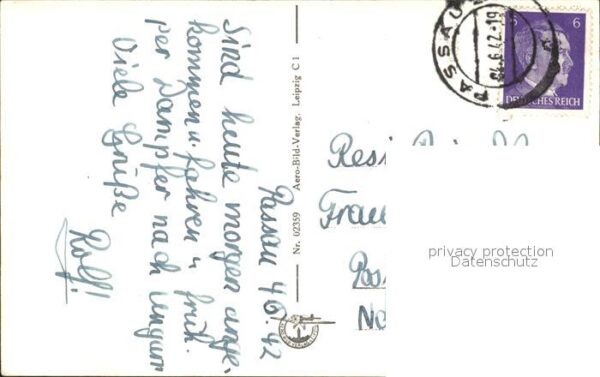 Passau 4.6.42
Sind heute morgen ange-
kommen u. fahren 4 früh.
per Dampfer nach Ungarn
Viele Grüße
Rolf!
Nr. 02359 Aero-Bild-Verlag, Leipzig C 1
PASSAU
4.6.42-19
6 6
DEUTSCHES REICH
Frau
privacy protection
Datenschutz